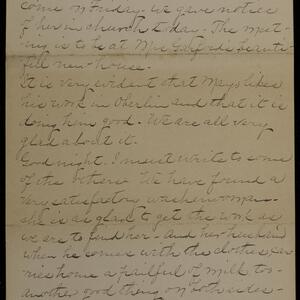 come on Friday - we gave notice
of her in church today. The meet-
ing is to be at Mrs Gaiford's beauti-
ful new house.
It is very evident that Mays likes
his work in Oberlin and that it is
doing him good. We are all very
glad about it.
Good night. I must write to some
of the others. We have found a
very satisfactory washerwoman -
she is as glad to get the work as
we are to find her - And her husband
when he comes with the clothes car-
ries home a pailful of milk too -
another good thing on both sides -